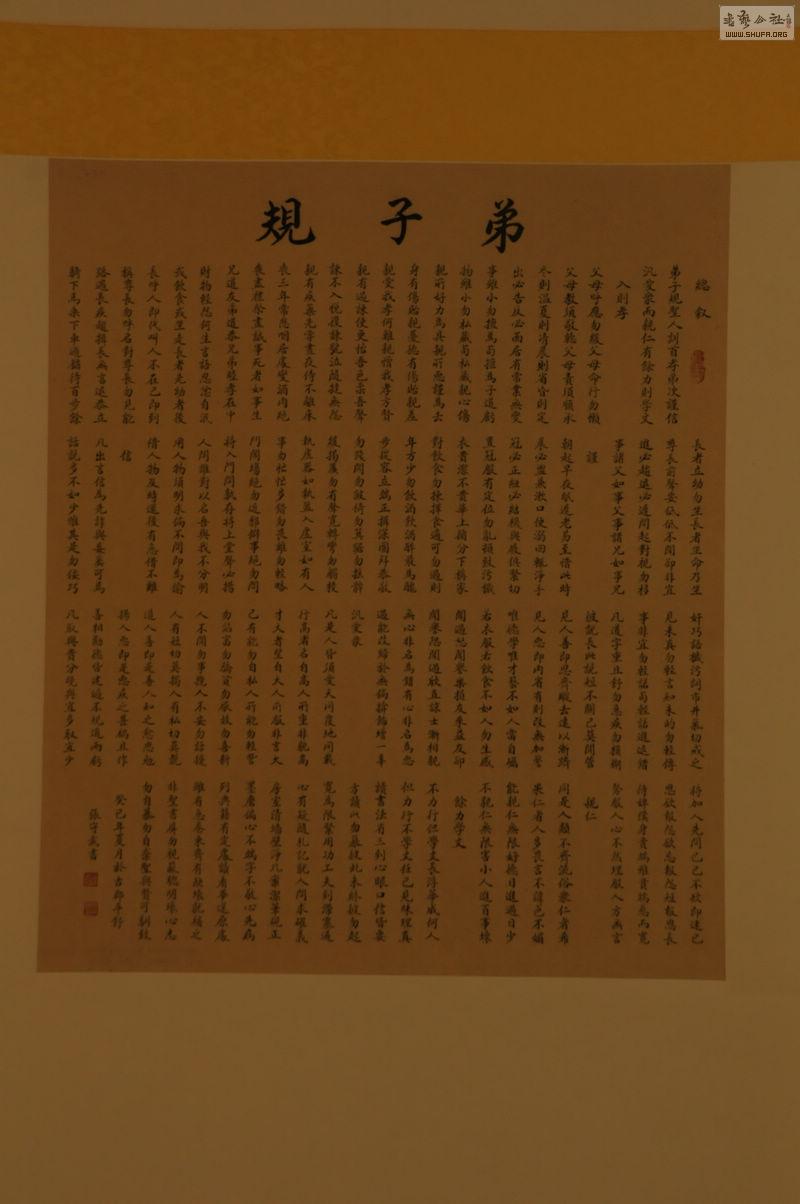 弟子規
總叙
弟子規聖人訓首孝弟次謹信
汎愛衆而親仁有餘力則學文
入則孝
父母呼應勿緩父母命行勿懶
父母教須敬聽父母責須順承
冬則溫夏則凊晨則省昏則定
出必告反必面居有常業無變
事雖小勿擅為苟擅為子道虧
物雖小勿私藏苟私藏親心傷
親所好力為具親所惡謹為去
身有傷貽親憂德有傷貽親羞
親愛我孝何難親憎我孝方賢
親有過諫使更怡吾色柔吾聲
諫不入悅復諫號泣隨撻無怨
親有疾藥先嘗晝夜侍不離床
喪三年常悲咽居處變酒肉絕
喪盡禮祭盡誠事死者如事生
兄道友弟道恭兄弟睦孝在中
財物輕怨何生言語忍忿自泯
或飲食或坐走長者先幼者後
長呼人即代叫人不在己即到
稱尊長勿呼名對尊長勿見能
路遇長疾趨揖長無言退恭立
騎下馬乘下車過猶待百步餘
長者立幼勿坐長者坐命乃坐
尊長前聲要低低不聞卻非宜
進必趨退必遲問起對視勿移
事諸父如事父事諸兄如事兄
謹
朝起早夜眠遲老易至惜此時
晨必盥兼漱口便溺回輒淨手
冠必正紐必結襪與履俱緊切
置冠服有定位勿亂頓致污穢
衣貴潔不貴華上循分下稱家
對飲食勿揀擇食適可勿過則
年方少勿飲酒飲酒醉最為醜
步從容立端正揖深圓拜恭敬
勿踐閾勿跛倚勿箕踞勿搖髀
緩揭簾勿有聲寬轉彎勿觸稜
執虛器如執盈入虛室如有人
事勿忙忙多錯勿畏難勿輕略
鬥鬧場絕勿近邪僻事絕勿問
將入門問孰存將上堂聲必揚
人問誰對以名吾與我不分明
用人物須明求倘不問即為偷
借人物及時還後有急借不難
信
凡出言信為先詐與妄奚可焉
話說多不如少惟其是勿佞巧
奸巧語穢污詞市井氣切戒之
見未真勿輕言知未的勿輕傳
事非宜勿輕諾苟輕諾進退錯
凡道字重且舒勿急疾勿模糊
彼說長此說短不關己莫閒管
見人善即思齊縱去遠以漸躋
見人惡即內省有則改無加警
唯德學唯才藝不如人當自礪
若衣服若飲食不如人勿生慼
聞過怒聞譽樂損友來益友卻
聞譽恐聞過欣直諒士漸相親
無心非名為錯有心非名為惡
過能改歸於無倘揜飾增一辜
汎愛衆
凡是人皆須愛天同覆地同載
行高者名自高人所重非貌高
才大者望自大人所服非言大
己有能勿自私人所能勿輕訾
勿諂富勿驕貧勿厭故勿喜新
人不閒勿事攪人不安勿話擾
人有短切莫揭人有私切莫說
道人善即是善人知之愈思勉
揚人惡即是惡疾之甚禍且作
善相勸德皆建過不規道兩虧
凡取與貴分曉與宜多取宜少
將加人先問己己不欲即速已
恩欲報怨欲忘報怨短報恩長
待婢僕身貴端雖貴端慈而寬
勢服人心不然理服人方無言
親仁
同是人類不齊流俗衆仁者希
果仁者人多畏言不諱色不媚
能親仁無限好德日進過日少
不親仁無限害小人進百事壞
餘力學文
不力行但學文長浮華成何人
但力行不學文任己見昧理真
讀書法有三到心眼口信皆要
方讀此勿慕彼此未終彼勿起
寬為限緊用功工夫到滯塞通
心有疑隨札記就人問求確義
房室清墻壁淨几案潔筆硯正
墨磨偏心不端字不敬心先病
列典籍有定處讀看畢還原處
雖有急卷束齊有缺壞就補之
非聖書屏勿視蔽聰明壞心志
勿自暴勿自棄聖與賢可馴致
癸巳年夏月於古郢
張守武書
書藝公社
WWW.SHUFA.ORG